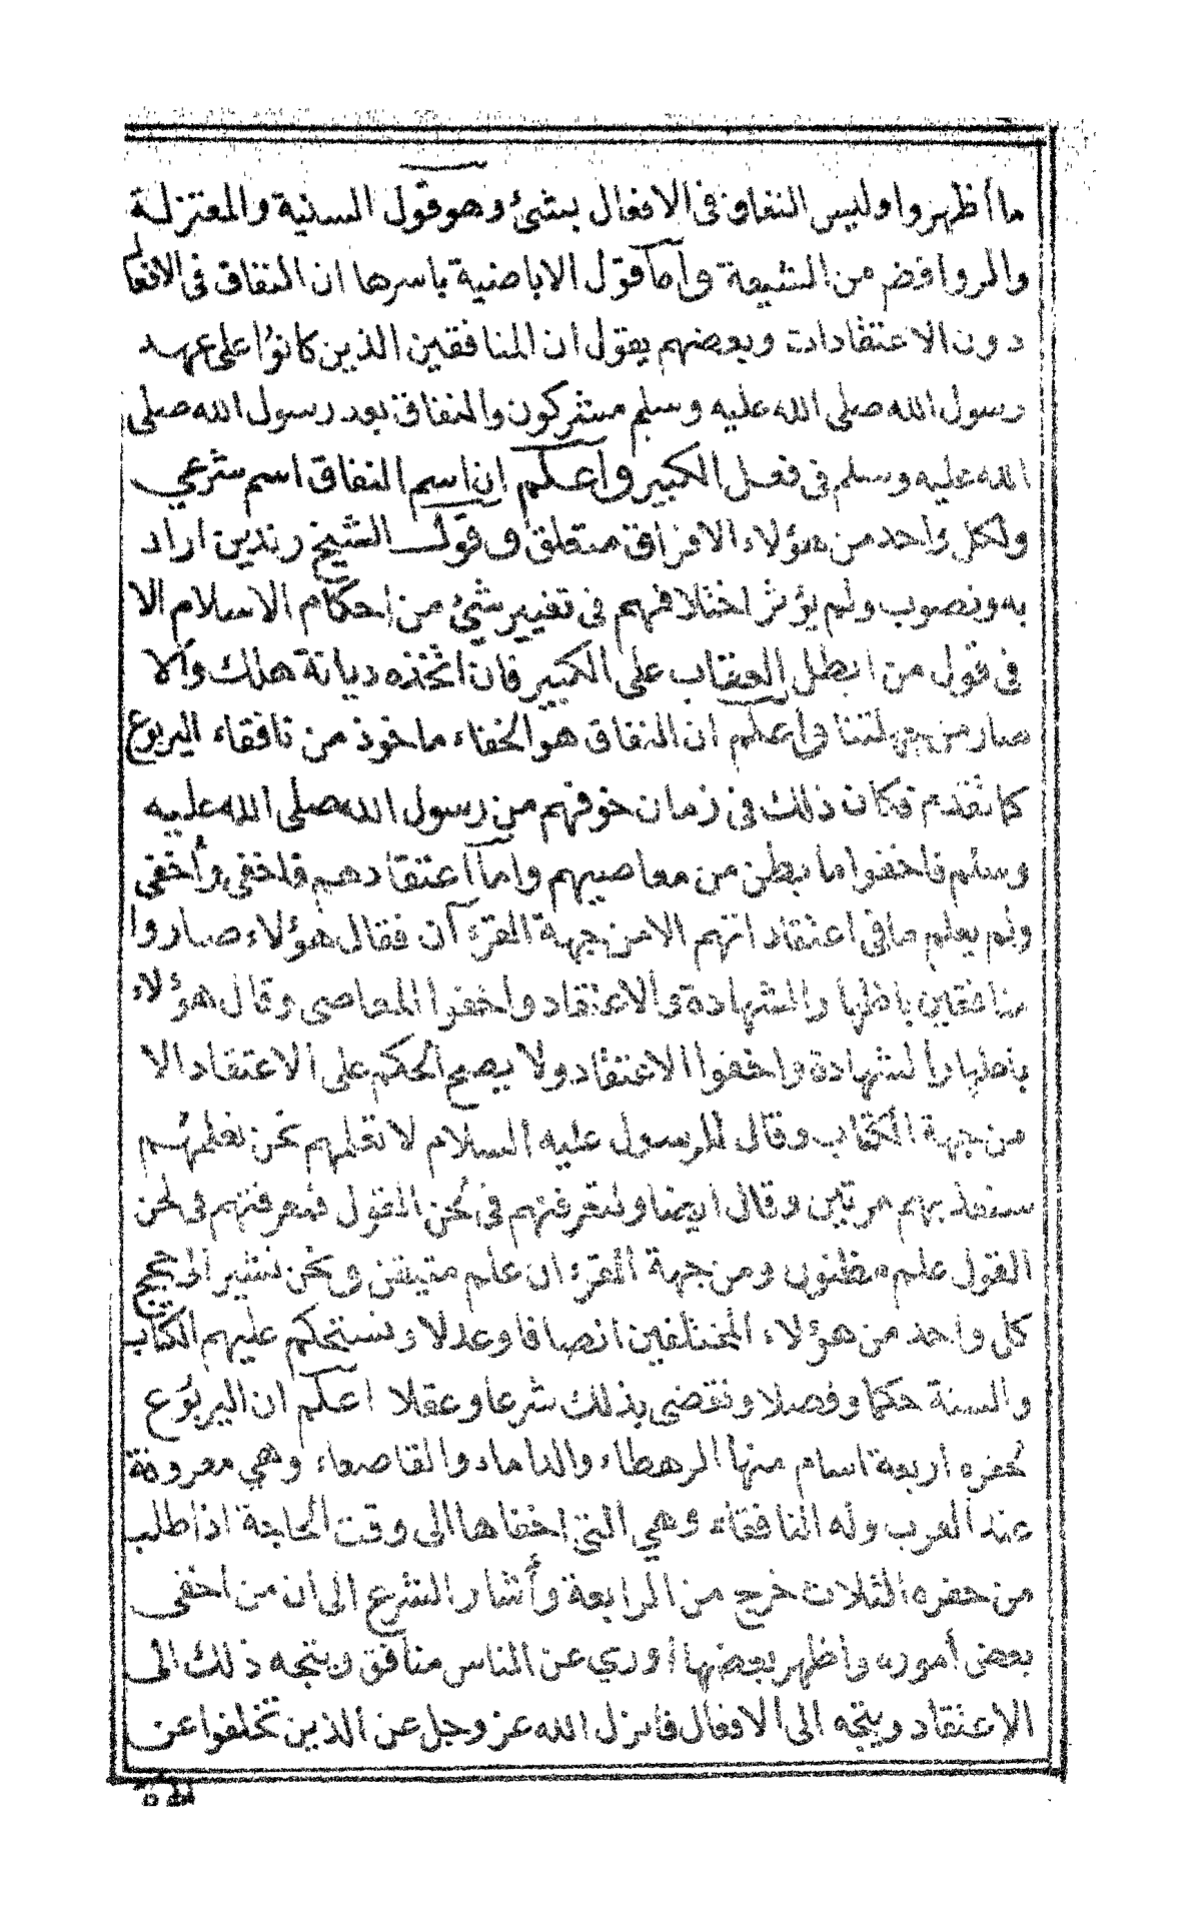 ما أظهروا وليس النفاق فى الافعال بشئ وهو قول السنية والمعتزلة
والروافض من الشيعة وأما قول الاباضية باسرها ان النفاق فى الافعال
دون الاعتقادات وبعضهم يقول ان المنافقين الذين كانوا على عهد
رسول الله صلى الله عليه وسلم مشركون والنفاق بعد رسول الله صلى
الله عليه وسلم فى فعل الكبير واعلم ان اسم النفاق اسم شرعي
ولكل واحد من هؤلاء الافراق متعلق وقول الشيخ رندين اراد
به ونصوب ولم يؤثر اختلافهم فى تغيير شئ من احكام الاسلام الا
فى قول من ابطل العقاب على الكبير فان اتخذه ديانة هلك وألا
صار من جهلتنا واعلم ان النفاق هو الخفاء ماخوذ من نافقاء اليربوع
كما تقدم فكان ذلك فى زمان خوفهم من رسول الله صلى الله عليه
وسلم فاخفوا ما بطن من معاصيهم واما اعتقادهم فاخفى وأخفى
ولم يعلم ما فى اعتقاداتهم الا من جهة القرءآن فقال هؤلاء صاروا
منافقين باظهار الشهادة والاعتقاد واخفوا المعاصى وقال هؤلاء
باظهار الشهادة واخفوا الاعتقاد ولا يصح الحكم على الاعتقاد الا
من جهة الكتاب وقال للرسول عليه السلام لا تعلمهم نحن نعلمهم
سنعذبهم مرتين وقال ايضا ولتعرفنهم فى لحن القول فمعرفتهم فى لحن
القول علم مظنون ومن جهة القرءان علم متيقن ونحن نشير الى حجج
كل واحد من هؤلاء المختلفين انصافا وعدلا ونستحكم عليهم الكتاب
والسنة حكما وفصلا ونقضى بذلك شرعا وعقلا اعلم ان اليربوع
لحفره اربعة اسام منها الرهطاء والداماء والقاصعاء وهي معروفة
عند العرب وله النافقاء وهي التى اخفاها الى وقت الحاجة اذا طلب
من حفره الثلاث خرج من الرابعة وأشار الشرع الى ان من اخفى
بعض أموره واظهر بعضها أوري عن الناس منافق ويتجه ذلك الى
الاعتقاد ويتجه الى الافعال فانزل الله عز وجل عن الذين تخلفوا عن